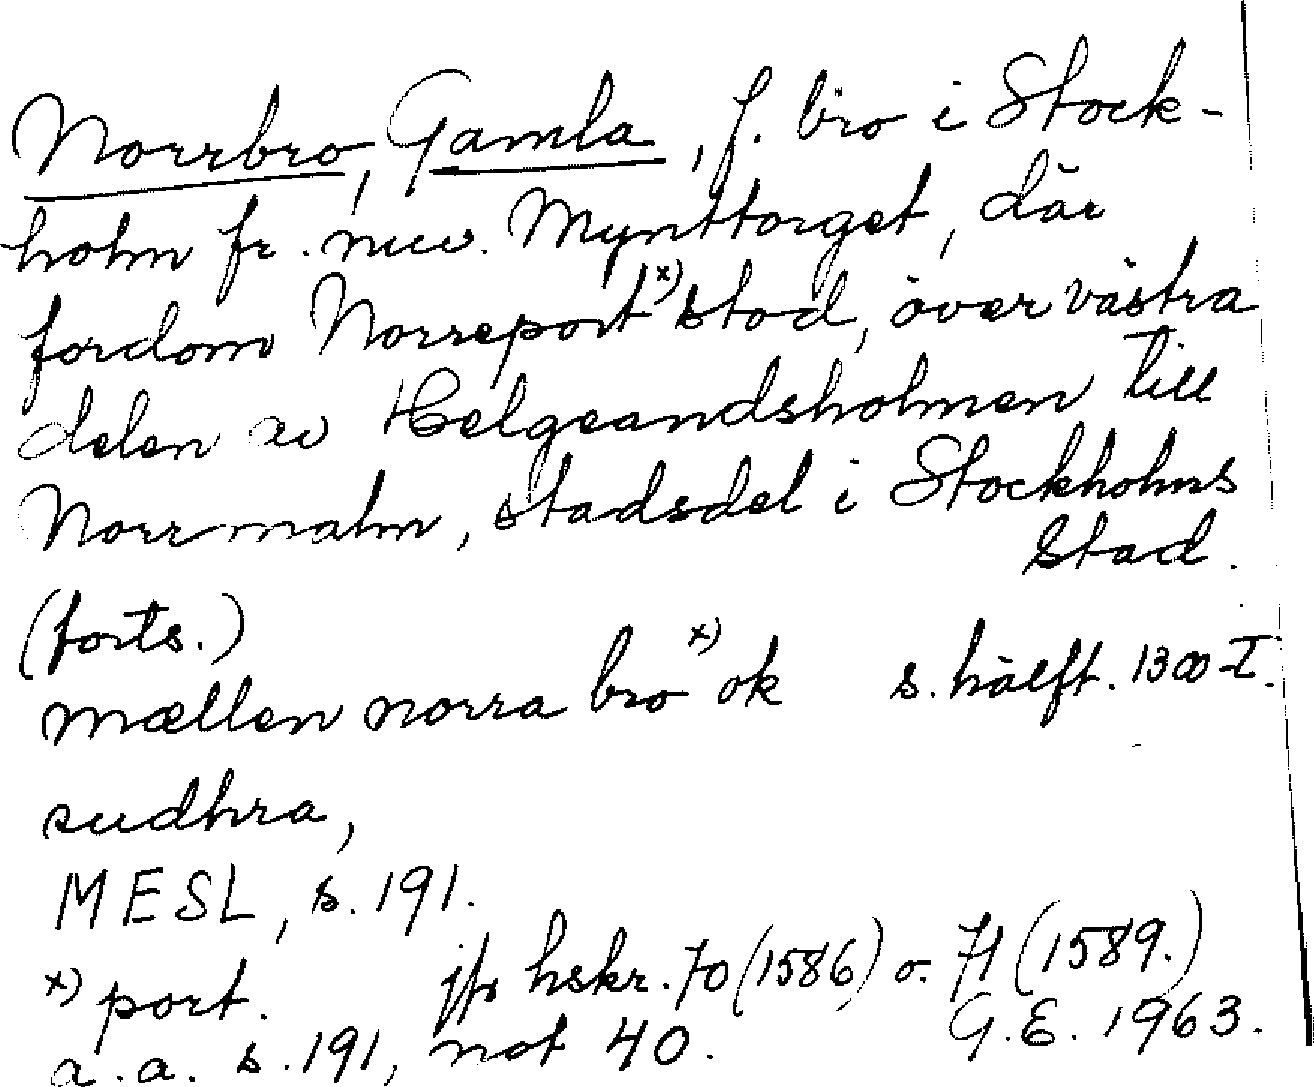 Norrbro, Gamla, f. bro i Stock-
holm fr. nuv. Mynttorget, där
fordom Norreport x) stod, över västra
delen av Helgeandsholmen till
Norrmalm, stadsdel i Stockholms
stad.
(forts.)
mællen norra bro x) ok s. hälft. 1300-T.
sudhra,
MESL, s. 191.
x) port. jfr hskr. 70 (1586) o. 71 (1589.)
a.a. s. 191, not 40. G.E. 1963.